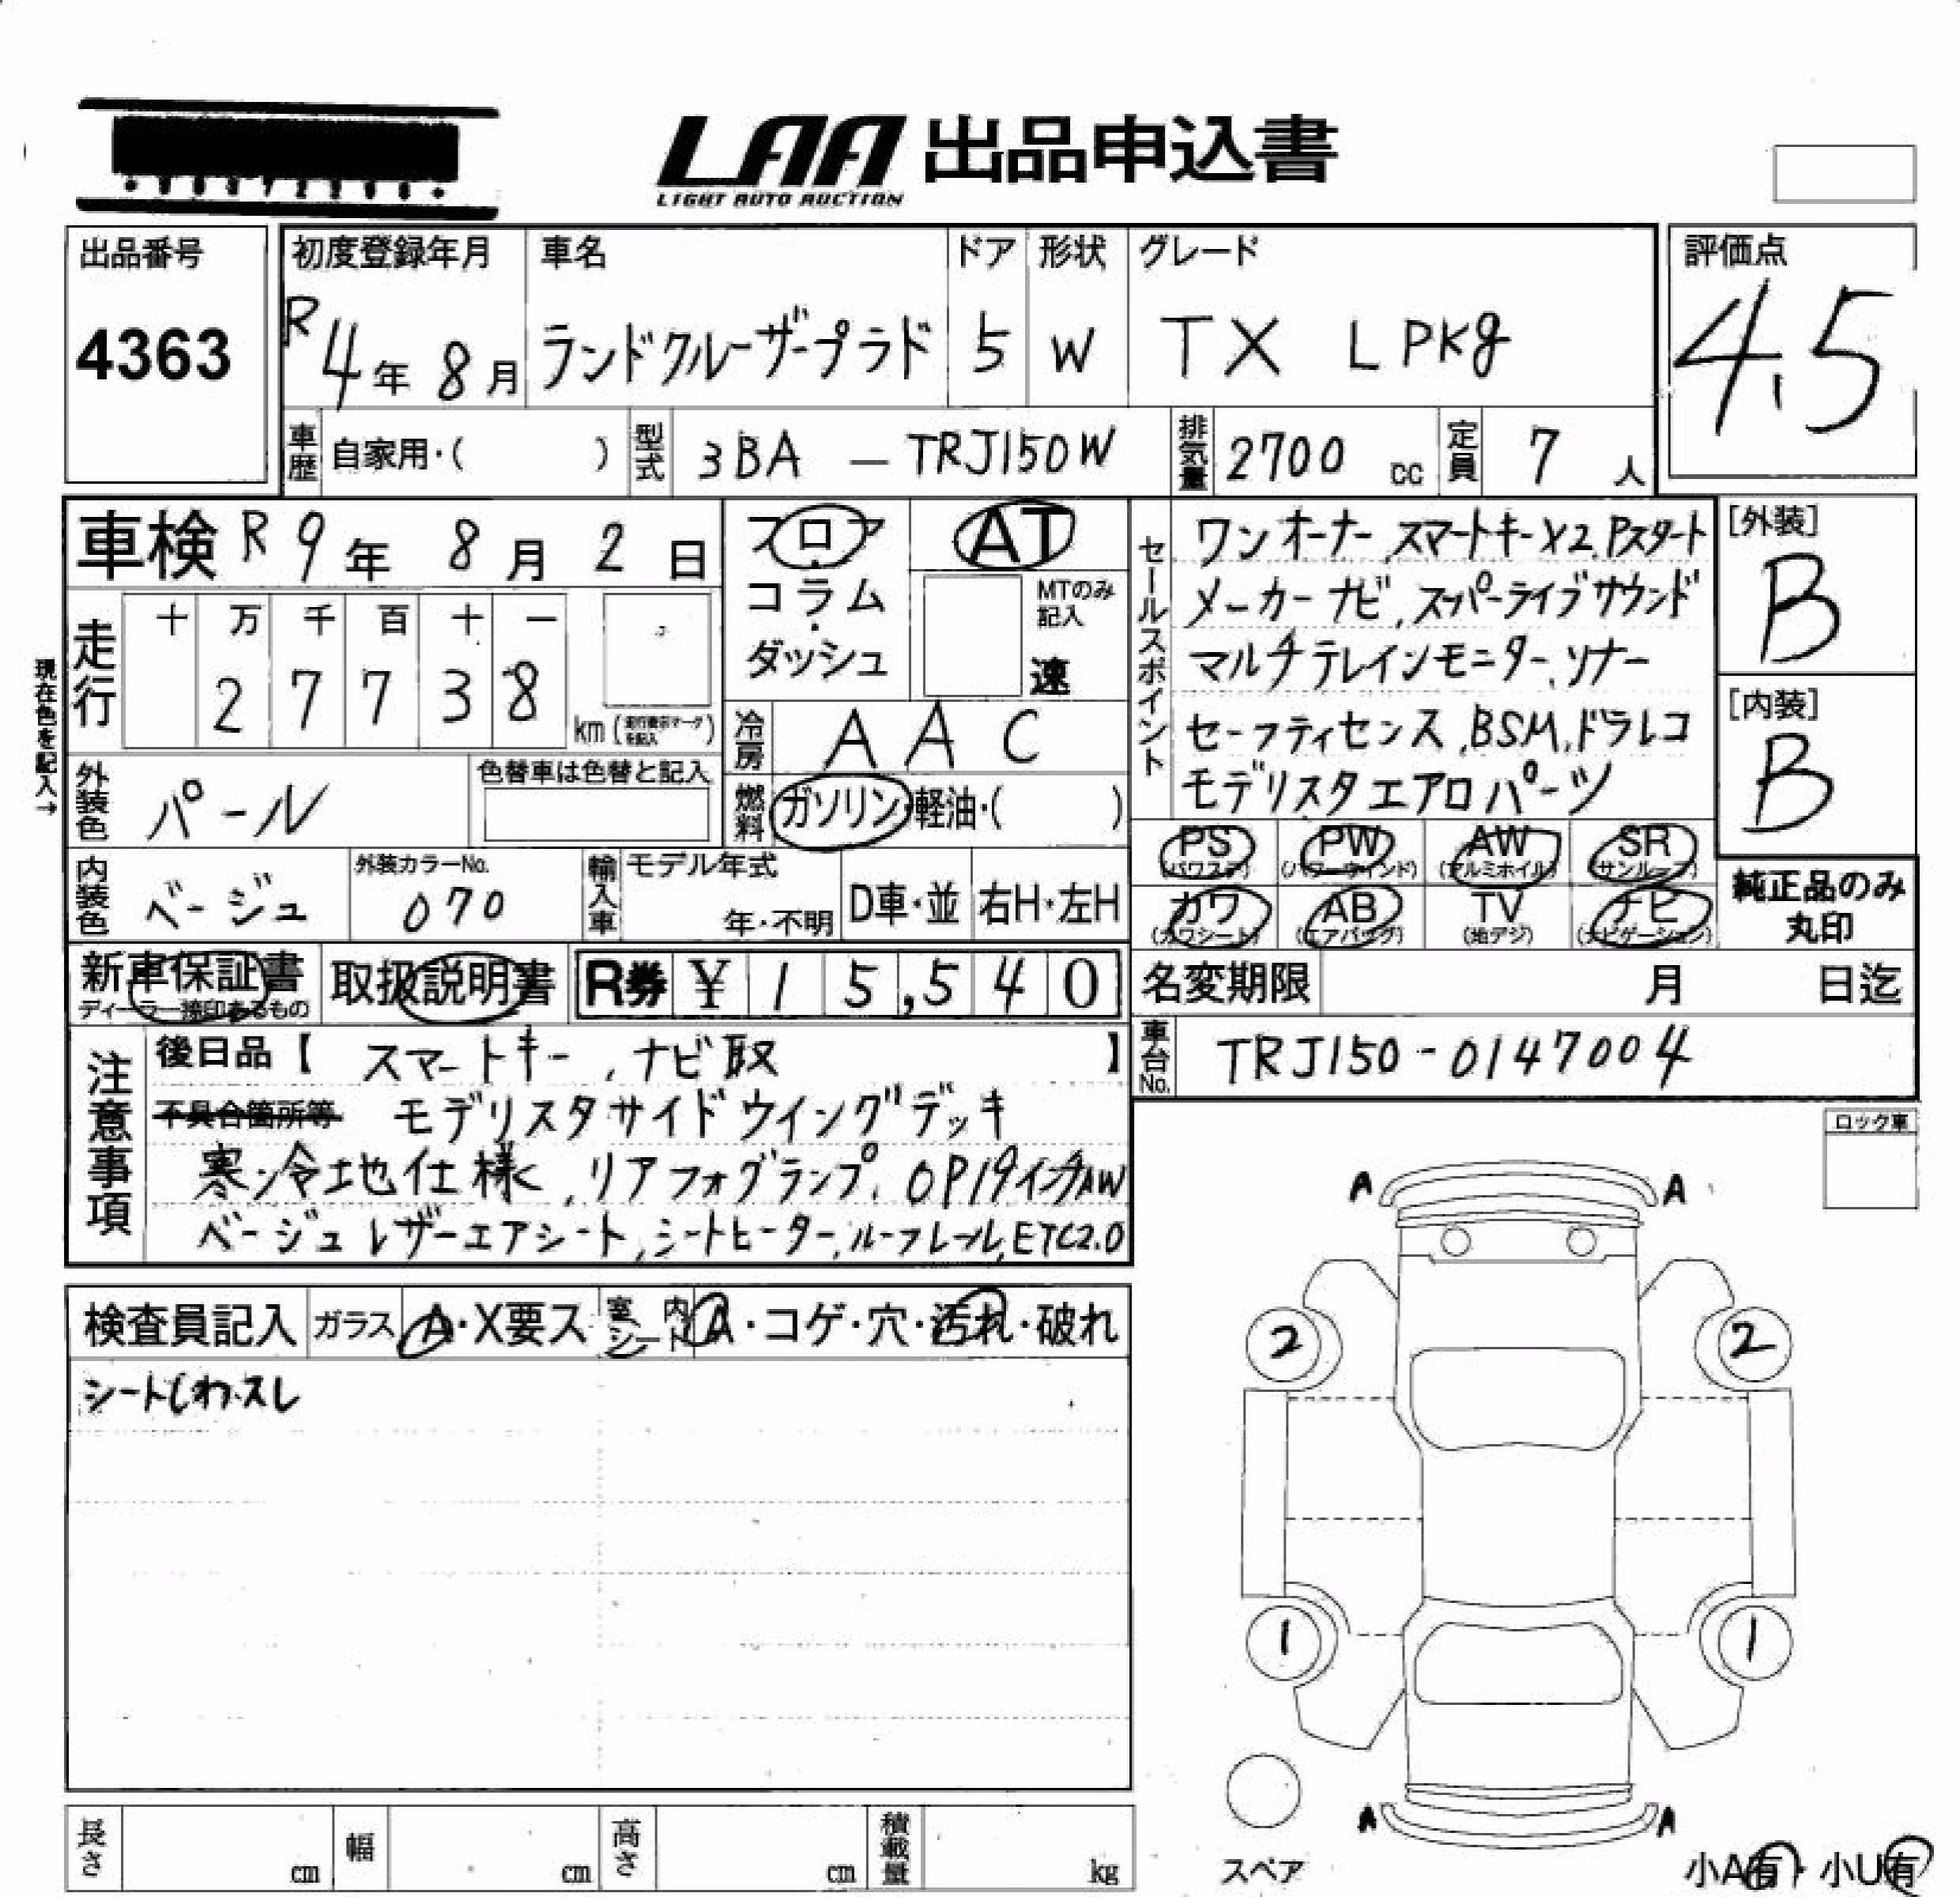 LAA 出品申込書
LIGHT AUTO AUCTION
出品番号
4363
初度登録年月
R4年 8月
車名
ランドクルーザープラド
ドア
5
形状
W
グレード
TX L PKg
評価点
4.5
車歴 自家用・( )
型式 3BA - TRJ150W
排気量 2700 cc
定員 7 人
車検 R 9年 8月 2日
現在色を記入→
走行
十 万 千 百 十 一
2 7 7 3 8
km (走行表示マークを記入)
フロア
コラム
ダッシュ
AT
MTのみ記入
速
冷房 AAC
燃料 ガソリン・軽油・( )
外装色 パール
色替車は色替と記入
内装色 ベージュ
外装カラーNo.
070
輸入車 モデル年式
年・不明
D車・並
右H・左H
セールスポイント
ワンオーナー、スマートキーX2、Pスタート
メーカーナビ、スーパーライブサウンド
マルチテレインモニター、ソナー
セーフティセンス、BSM、ドラレコ
モデリスタエアロパーツ
[外装]
B
[内装]
B
PS PW AW SR
(パワステ) (パワーウィンド) (アルミホイル) (サンルーフ)
カワ AB TV ナビ
(カワシート) (エアバッグ) (地デジ) (ナビゲーション)
純正品のみ
丸印
新車保証書
ディーラー捺印あるもの
取扱説明書
R券 ¥ 15,540
名変期限 月 日迄
車台No. TRJ150-0147004
注意事項
後日品【 スマートキー、ナビ取 】
不具合箇所等 モデリスタサイドウイングデッキ
寒冷地仕様、リアフォグランプ、OP19インチAW
ベージュレザーエアシート、シートヒーター、ルーフレール、ETC2.0
ロック車
検査員記入
ガラス A・X要ス
室内シート A・コゲ・穴・汚れ・破れ
シートしわ・スレ
A A
2 2
1 1
A A
スペア
小A有・小U有
長さ cm
幅 cm
高さ cm
積載量 kg